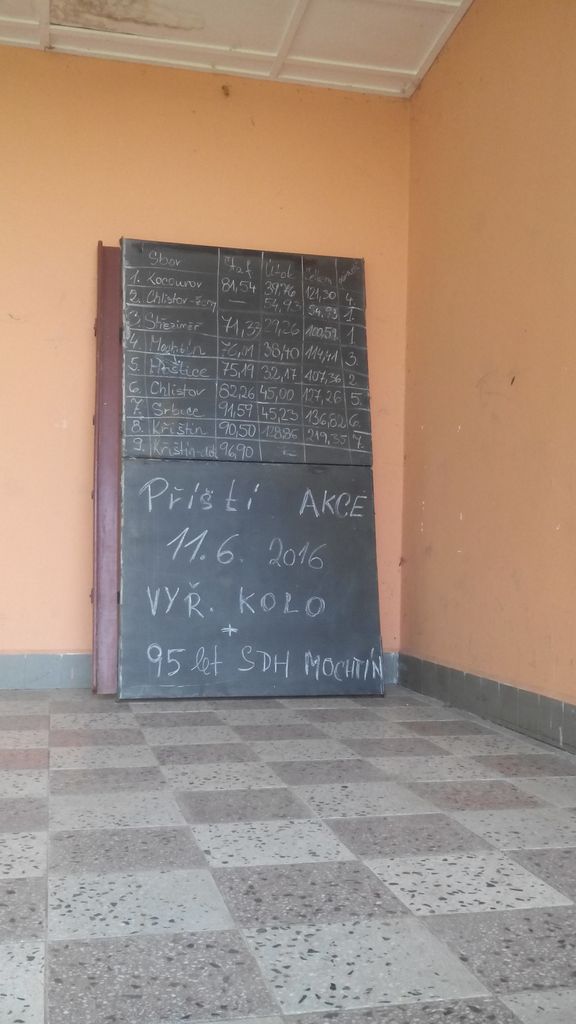 Sbor Štaf. Útok Celkem
1. Kocourov 81,54 39,76 121,30 4.
2. Chlistov - ženy — 54,93 54,93 1.
3. Střeziměř 71,33 29,26 100,59 1
4. Mochtín 76,01 38,40 114,41 3
5. Měštice 75,19 32,17 107,36 2
6. Chlistov 82,26 45,00 127,26 5.
7. Srbice 91,59 45,23 136,82 6.
8. Křištín 90,50 128,85 219,35 7.
9. Křištín 96,90 —
Příští AKCE
11.6. 2016
VYŘ. KOLO
+
95 let SDH MOCHTÍN